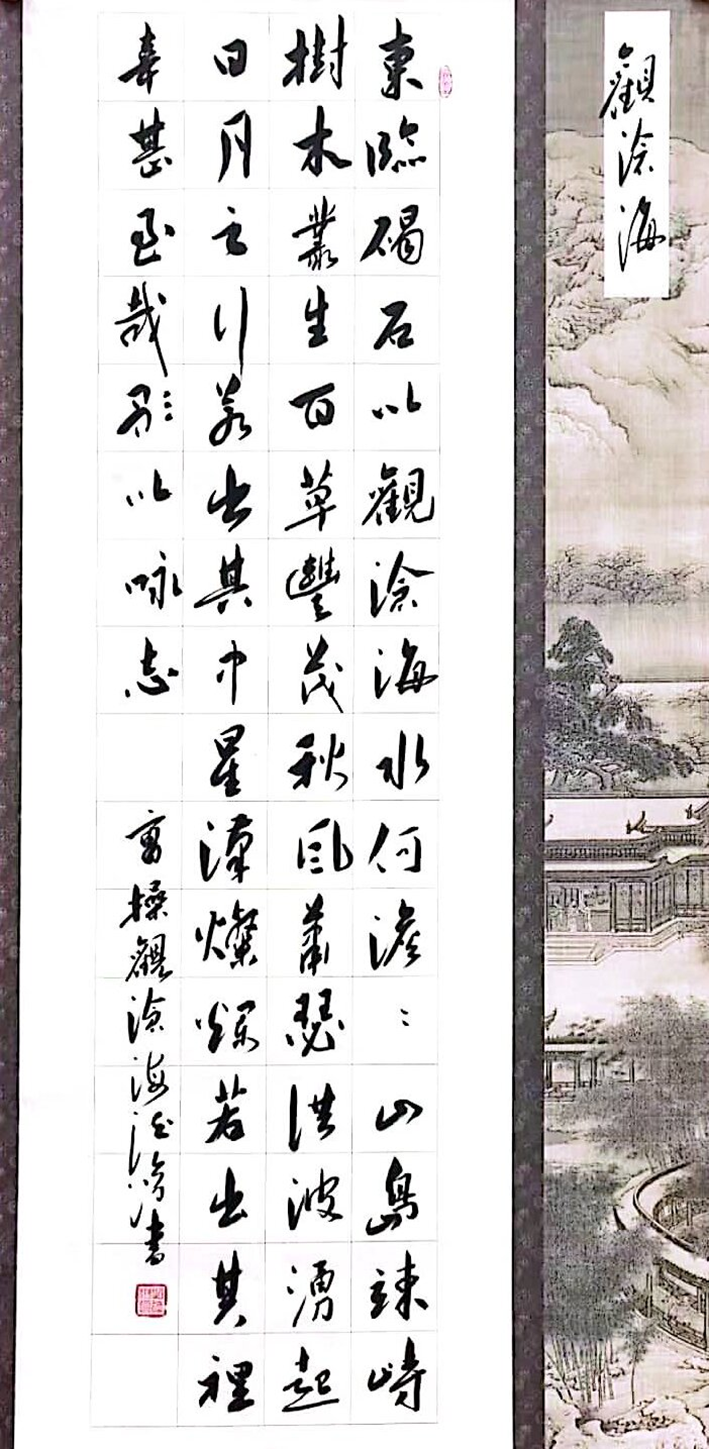 觀滄海
東臨碣石以觀滄海水何澹〻山島竦峙
樹木叢生百草豐茂秋風蕭瑟洪波湧起
日月之行若出其中星漢燦爛若出其裡
幸甚至哉歌以咏志 曹操觀滄海 書